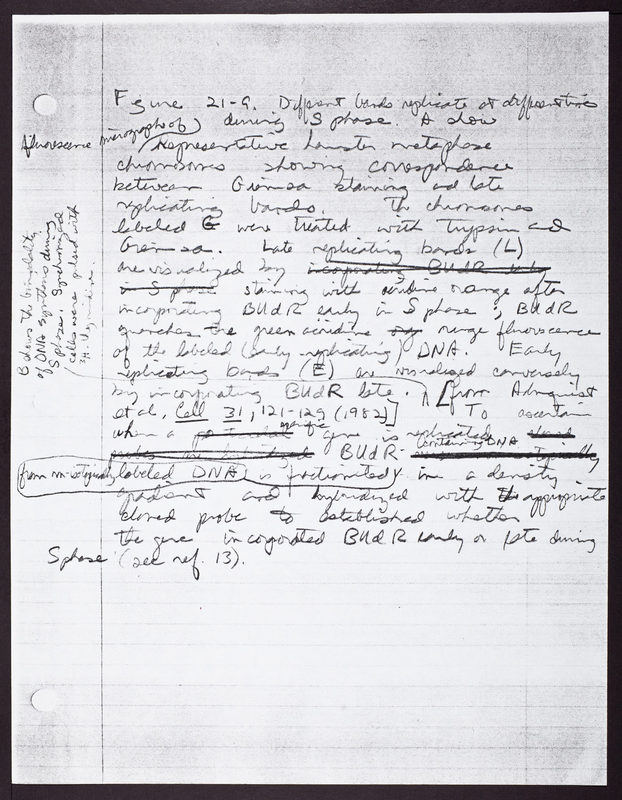 Figure 21-9. Different bands replicate at different times
during S phase. A show
fluorescence micrographs of
Representative hamster metaphase
chromosomes showing correspondence
between Giemsa staining and late
replicating bands. The chromosomes
labeled G were treated with trypsin and
Giemsa. Late replicating bands (L)
are visualized by incorporating BUdR
in S phase staining with acridine orange after
incorporating BUdR early in S phase; BUdR
quenches the green acridine orange fluorescence
of the labeled (early replicating) DNA. Early
replicating bands (E) are visualized conversely
by incorporating BUdR late. [from
et al, Cell 31, 121-129 (1982)] To ascertain
when a specific gene is replicated
BUdR- containing DNA
from labeled DNA is fractionated in a density
gradient and hybridized with appropriate
cloned probe to established whether
the gene incorporated BUdR early or late during
S phase (see ref. 13).
B shows the bimodality
of DNA synthesis during
S phase. Synchronized
cells were pulsed with
3H-thymidine.